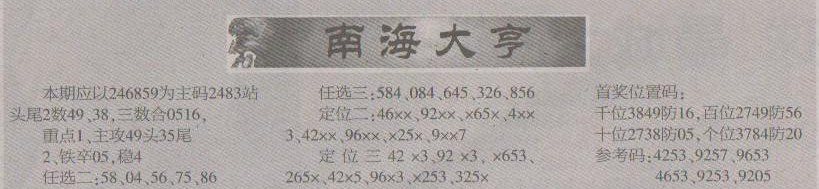 南海大亨
本期应以246859为主码2483站
头尾2数49、38、三数合0516,
重点1、主攻49头35尾
2、铁卒05、稳4
任选二:58、04、56、75、86
任选三:584、084、645、326、856
定位二:46××、92××、×65×、4××
3、42××、96××、×25×、9××7
定位三42×3、92×3、×653、
265×、42×5、96×3、×253、325×
首奖位置码:
千位3849防16,百位2749防56
十位2738防05、个位3784防20
参考码:4253、9257、9653
4653、9253、9205